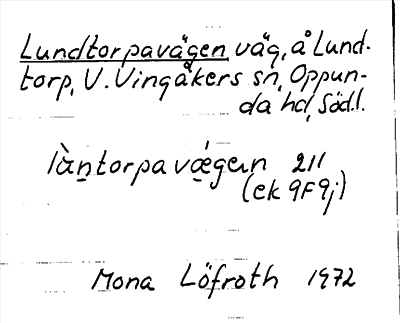 Lundtorpavägen, väg, å Lund-
torp, V. Vingåkers sn, Oppun-
da hd, Södl.
làn̲torpa vǽ̲gɐn 211
(ek 9F9j)
Mona Löfroth 1972